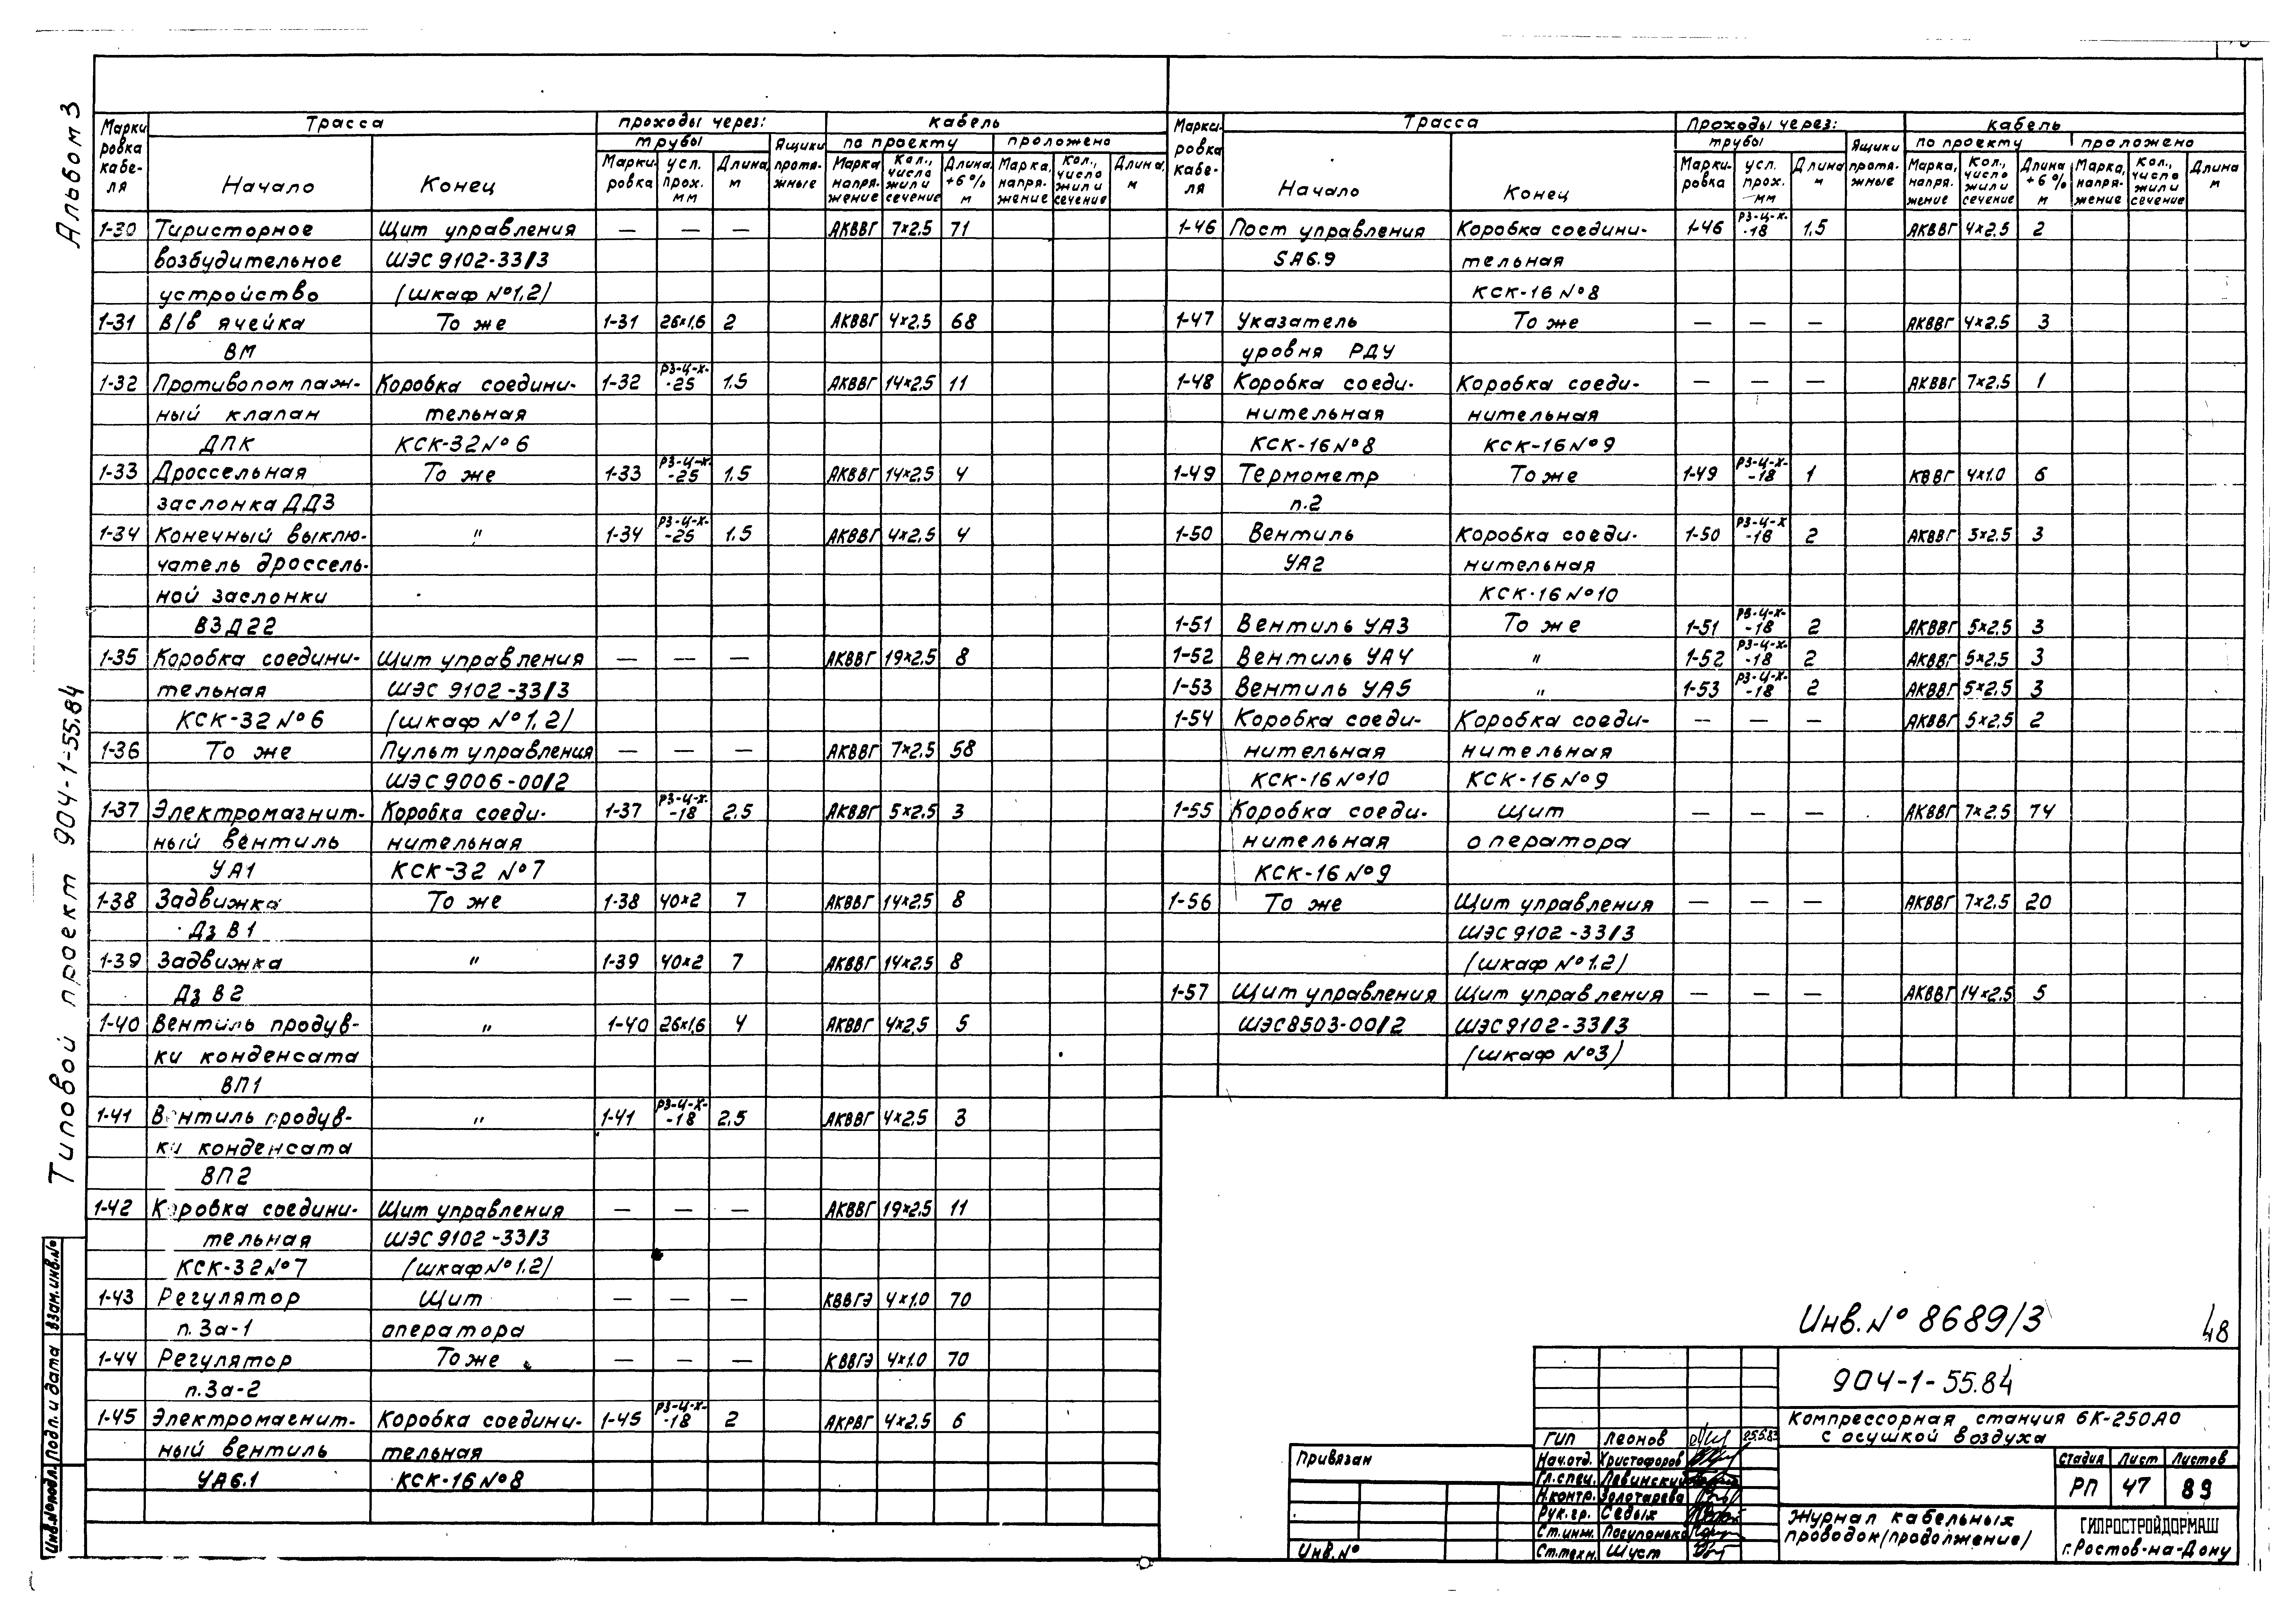 Альбом 3
Типовой проект 904-1-55.84
Марки- ровка кабе- ля | Трасса | проходы через: | кабель
трубы | Ящики протя- жные | по проекту | проложено
Начало | Конец | Марки- ровка | усл. прох. мм | Длина, м | Марка, напря- жение | Кол., число жил и сечение | Длина +6% м | Марка, напря- жение | Кол., число жил и сечение | Длина, м
1-30 Тиристорное Щит управления — — — АКВВГ 7×2,5 71
возбудительное ШЭС 9102-33/3
устройство (шкаф №1,2)
1-31 В/в ячейка То же 1-31 26×1,6 2 АКВВГ 4×2,5 68
ВМ
1-32 Противопомпаж- Коробка соедини- 1-32 РЗ-Ц-Х- -25 1,5 АКВВГ 14×2,5 11
ный клапан тельная
ДПК КСК-32 №6
1-33 Дроссельная То же 1-33 РЗ-Ц-Х- -25 1,5 АКВВГ 14×2,5 4
заслонка ДДЗ
1-34 Конечный выклю- " 1-34 РЗ-Ц-Х- -25 1,5 АКВВГ 4×2,5 4
чатель дроссель-
ной заслонки
ВЗД22
1-35 Коробка соедини- Щит управления — — — АКВВГ 19×2,5 8
тельная ШЭС 9102-33/3
КСК-32 №6 (шкаф №1,2)
1-36 То же Пульт управления — — — АКВВГ 7×2,5 58
ШЭС 9006-00/2
1-37 Электромагнит- Коробка соеди- 1-37 РЗ-Ц-Х- -18 2,5 АКВВГ 5×2,5 3
ный вентиль нительная
УА1 КСК-32 №7
1-38 Задвижка То же 1-38 40×2 7 АКВВГ 14×2,5 8
Дз В1
1-39 Задвижка " 1-39 40×2 7 АКВВГ 14×2,5 8
Дз В2
1-40 Вентиль продув- " 1-40 26×1,6 4 АКВВГ 4×2,5 5
ки конденсата
ВП1
1-41 Вентиль продув- " 1-41 РЗ-Ц-Х- -18 2,5 АКВВГ 4×2,5 3
ки конденсата
ВП2
1-42 Коробка соедини- Щит управления — — — АКВВГ 19×2,5 11
тельная ШЭС 9102-33/3
КСК-32 №7 (шкаф №1,2)
1-43 Регулятор Щит — — — КВВГЭ 4×1,0 70
п.3а-1 оператора
1-44 Регулятор То же — — — КВВГЭ 4×1,0 70
п.3а-2
1-45 Электромагнит- Коробка соедини- 1-45 РЗ-Ц-Х- -18 2 АКРВГ 4×2,5 6
ный вентиль тельная
УА6.1 КСК-16 №8
Марки- ровка кабе- ля | Трасса | Проходы через: | кабель
трубы | Ящики протя- жные | по проекту | проложено
Начало | Конец | Марки- ровка | усл. прох. мм | Длина м | Марка, напря- жение | Кол., число жил и сечение | Длина +6% м | Марка, напря- жение | Кол., число жил и сечение | Длина м
1-46 Пост управления Коробка соедини- 1-46 РЗ-Ц-Х- -18 1,5 АКВВГ 4×2,5 2
SA6.9 тельная
КСК-16 №8
1-47 Указатель То же — — — АКВВГ 4×2,5 3
уровня РДУ
1-48 Коробка соеди- Коробка соеди- — — — АКВВГ 7×2,5 1
нительная нительная
КСК-16 №8 КСК-16 №9
1-49 Термометр То же 1-49 РЗ-Ц-Х- -18 1 КВВГ 4×1,0 6
п.2
1-50 Вентиль Коробка соеди- 1-50 РЗ-Ц-Х -18 2 АКВВГ 5×2,5 3
УА2 нительная
КСК-16 №10
1-51 Вентиль УА3 То же 1-51 РЗ-Ц-Х- -18 2 АКВВГ 5×2,5 3
1-52 Вентиль УА4 " 1-52 РЗ-Ц-Х- -18 2 АКВВГ 5×2,5 3
1-53 Вентиль УА5 " 1-53 РЗ-Ц-Х- -18 2 АКВВГ 5×2,5 3
1-54 Коробка соеди- Коробка соеди- — — — АКВВГ 5×2,5 2
нительная нительная
КСК-16 №10 КСК-16 №9
1-55 Коробка соеди- Щит — — — АКВВГ 7×2,5 74
нительная оператора
КСК-16 №9
1-56 То же Щит управления — — — АКВВГ 7×2,5 20
ШЭС 9102-33/3
(шкаф №1,2)
1-57 Щит управления Щит управления — — — АКВВГ 14×2,5 5
ШЭС8503-00/2 ШЭС9102-33/3
(шкаф №3)
Инв.№ 8689/3
48
904-1-55.84
Компрессорная станция 6К-250АО
с осушкой воздуха
ГИП Леонов 25.5.83
Нач.отд. Христофоров
Гл.спец. Левинский
Н.контр. Золотарева
Рук.гр. Седых
Ст.инж. Посупонько
Ст.техн. Шуст
Стадия Лист Листов
РП 47 89
Журнал кабельных
проводок (продолжение)
ГИПРОСТРОЙДОРМАШ
г.Ростов-на-Дону
Привязан
Инв.№
Инв.№подл. Подп. и дата Взам.инв.№